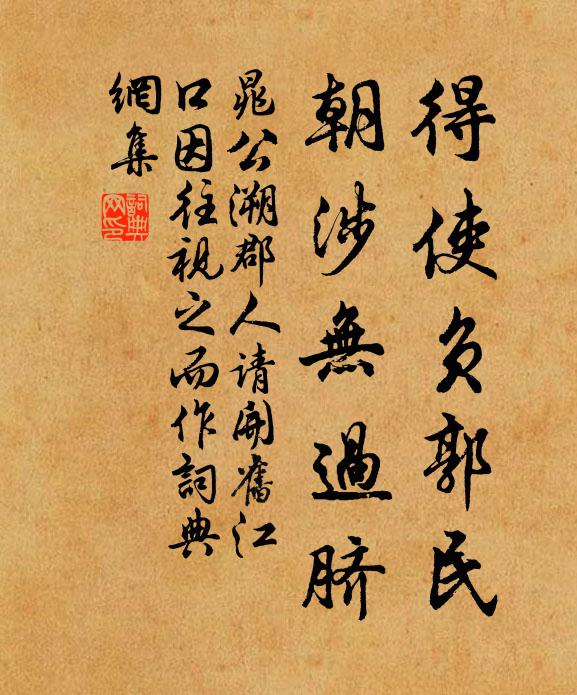 得使负郭民
朝涉無過脐
晁公溯郡人请開舊江
口因往視之而作詞典
網集
詞典
网印